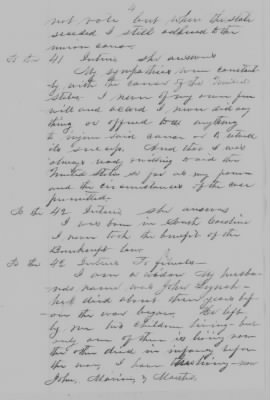 4
not vote but when the state
seceded I still adhered to the
union cause.
To the 41 Interie she answers
My sympathies were constant-
ly with the cause of the United
States. I never of my own free
will and accord I never did any
thing or offered to do anything
to injure said cause or retard
its success. And that I was
always ready & willing to aid the
United States so far as my power
and the circumstances of the case
permitted.
To the 42 Interie she answers
I was born in South Carolina
I never took the benefit of the
Bankrupt law.
To the 42 Interie to females
I am a widow My husbands
name was John Lynah
but died about three years bef-
ore the war began. He left
by me six children living - but
only one of them is living now
the other died in infancy before
the war, I have living - now
John, Maria, & Martha.